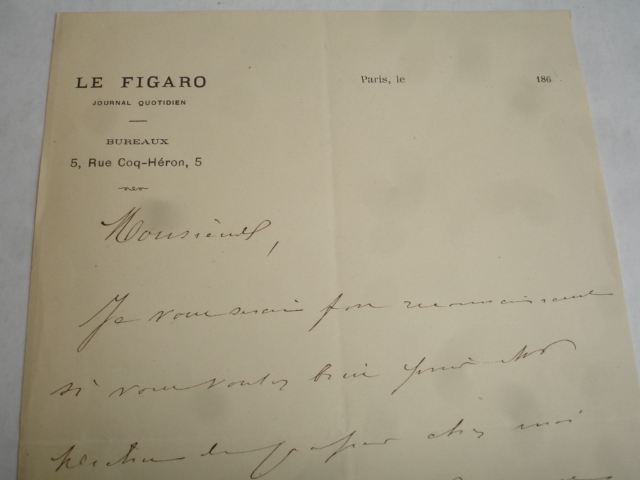 LE FIGARO
JOURNAL QUOTIDIEN
BUREAUX
5, Rue Coq-Héron, 5
Paris, le 186
Monsieur,
Je vous serais fort reconnaissant
si vous voulez bien
de passer chez moi